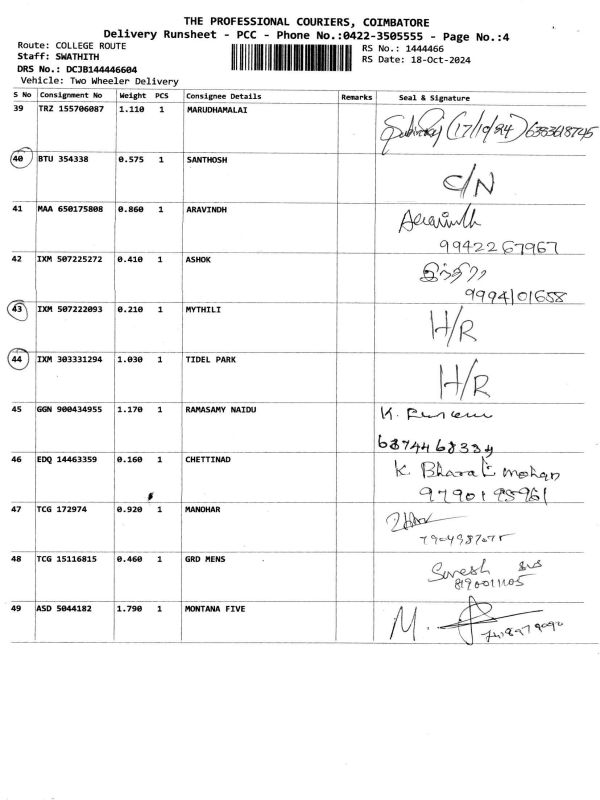 THE PROFESSIONAL COURIERS, COIMBATORE
Delivery Runsheet - PCC - Phone No.:0422-3505555 - Page No.:4
Route: COLLEGE ROUTE RS No.: 1444466
Staff: SWATHITH RS Date: 18-Oct-2024
DRS No.: DCJB144446604
Vehicle: Two Wheeler Delivery
S No Consignment No Weight PCS Consignee Details Remarks Seal & Signature
39 TRZ 155706087 1.110 1 MARUDHAMALAI (17/10/24) 6383618745
40 BTU 354338 0.575 1 SANTHOSH C/N
41 MAA 650175808 0.860 1 ARAVINDH Aravindh
9942267967
42 IXM 507225272 0.410 1 ASHOK இந்திரா
9994101658
43 IXM 507222093 0.210 1 MYTHILI H/R
44 IXM 303331294 1.030 1 TIDEL PARK H/R
45 GGN 900434955 1.170 1 RAMASAMY NAIDU K.
6874468334
46 EDQ 14463359 0.160 1 CHETTINAD K. Bharati mohan
9790195961
47 TCG 172974 0.920 1 MANOHAR
7904987075
48 TCG 15116815 0.460 1 GRD MENS Suresh
8190011105
49 ASD 5044182 1.790 1 MONTANA FIVE M.